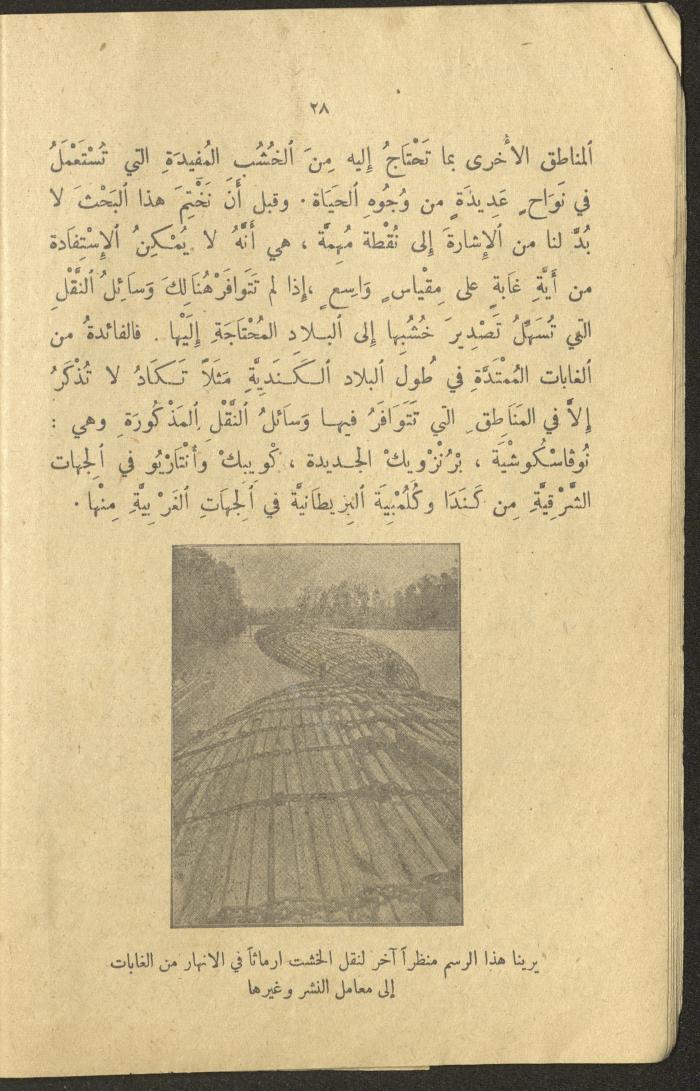 ٢٨
ٱلمناطق الأُخرى بما تَحْتَاجُ إليه مِنَ ٱلخُشُبِ المُفيدَةِ التي تُسْتَعْمَلُ
في نَوَاحٍ عَدِيدَةٍ من وُجُوهِ ٱلحَيَاة . وقبل أَنْ نَخْتِمَ هذا ٱلبَحْثَ لا
بُدَّ لنا من ٱلإِشارةِ إلى نُقْطة مُهِمَّة ، هي أَنَّهُ لا يُمْكِنُ ٱلإِسْتِفادة
من أَيَّةِ غابَةٍ على مِقْياسٍ وَاسِعٍ ،إذا لم تَتَوافَرْ هُنَالِكَ وَسَائِلُ ٱلنَّقْلِ
التي تُسَهِّلُ تَصْدِيرَ خُشُبِها إلى ٱلبلاد المُحْتَاجَةِ إِلَيْها . فالفائدةُ من
ٱلغابات المُمْتَدَّةِ في طُول ٱلبلاد ٱلكَنَديَّةِ مَثَلاً تَكَادُ لا تُذْكَرُ
إلاَّ في المَنَاطِقِ التي تَتَوَافَرُ فيها وَسَائلُ ٱلنَّقْلِ ٱلمَذْكُورَة وهي :
نُوڤاسْكُوشْيَة ، بْرُنْزْويكْ الجديدة ، كْويبكْ وأُنْتَارْيُو في ٱلجهات
الشَّرْقِيَّةِ مِن كَنَدَا وكُلُمْبِيَة ٱلبريطَانيَّة في ٱلجِهَاتِ ٱلغَرْبِيَّةِ مِنْها .
يرينا هذا الرسم منظراً آخر لنقل الخشت ارماثاً في الانهار من الغابات
إلى معامل النشر وغيرها